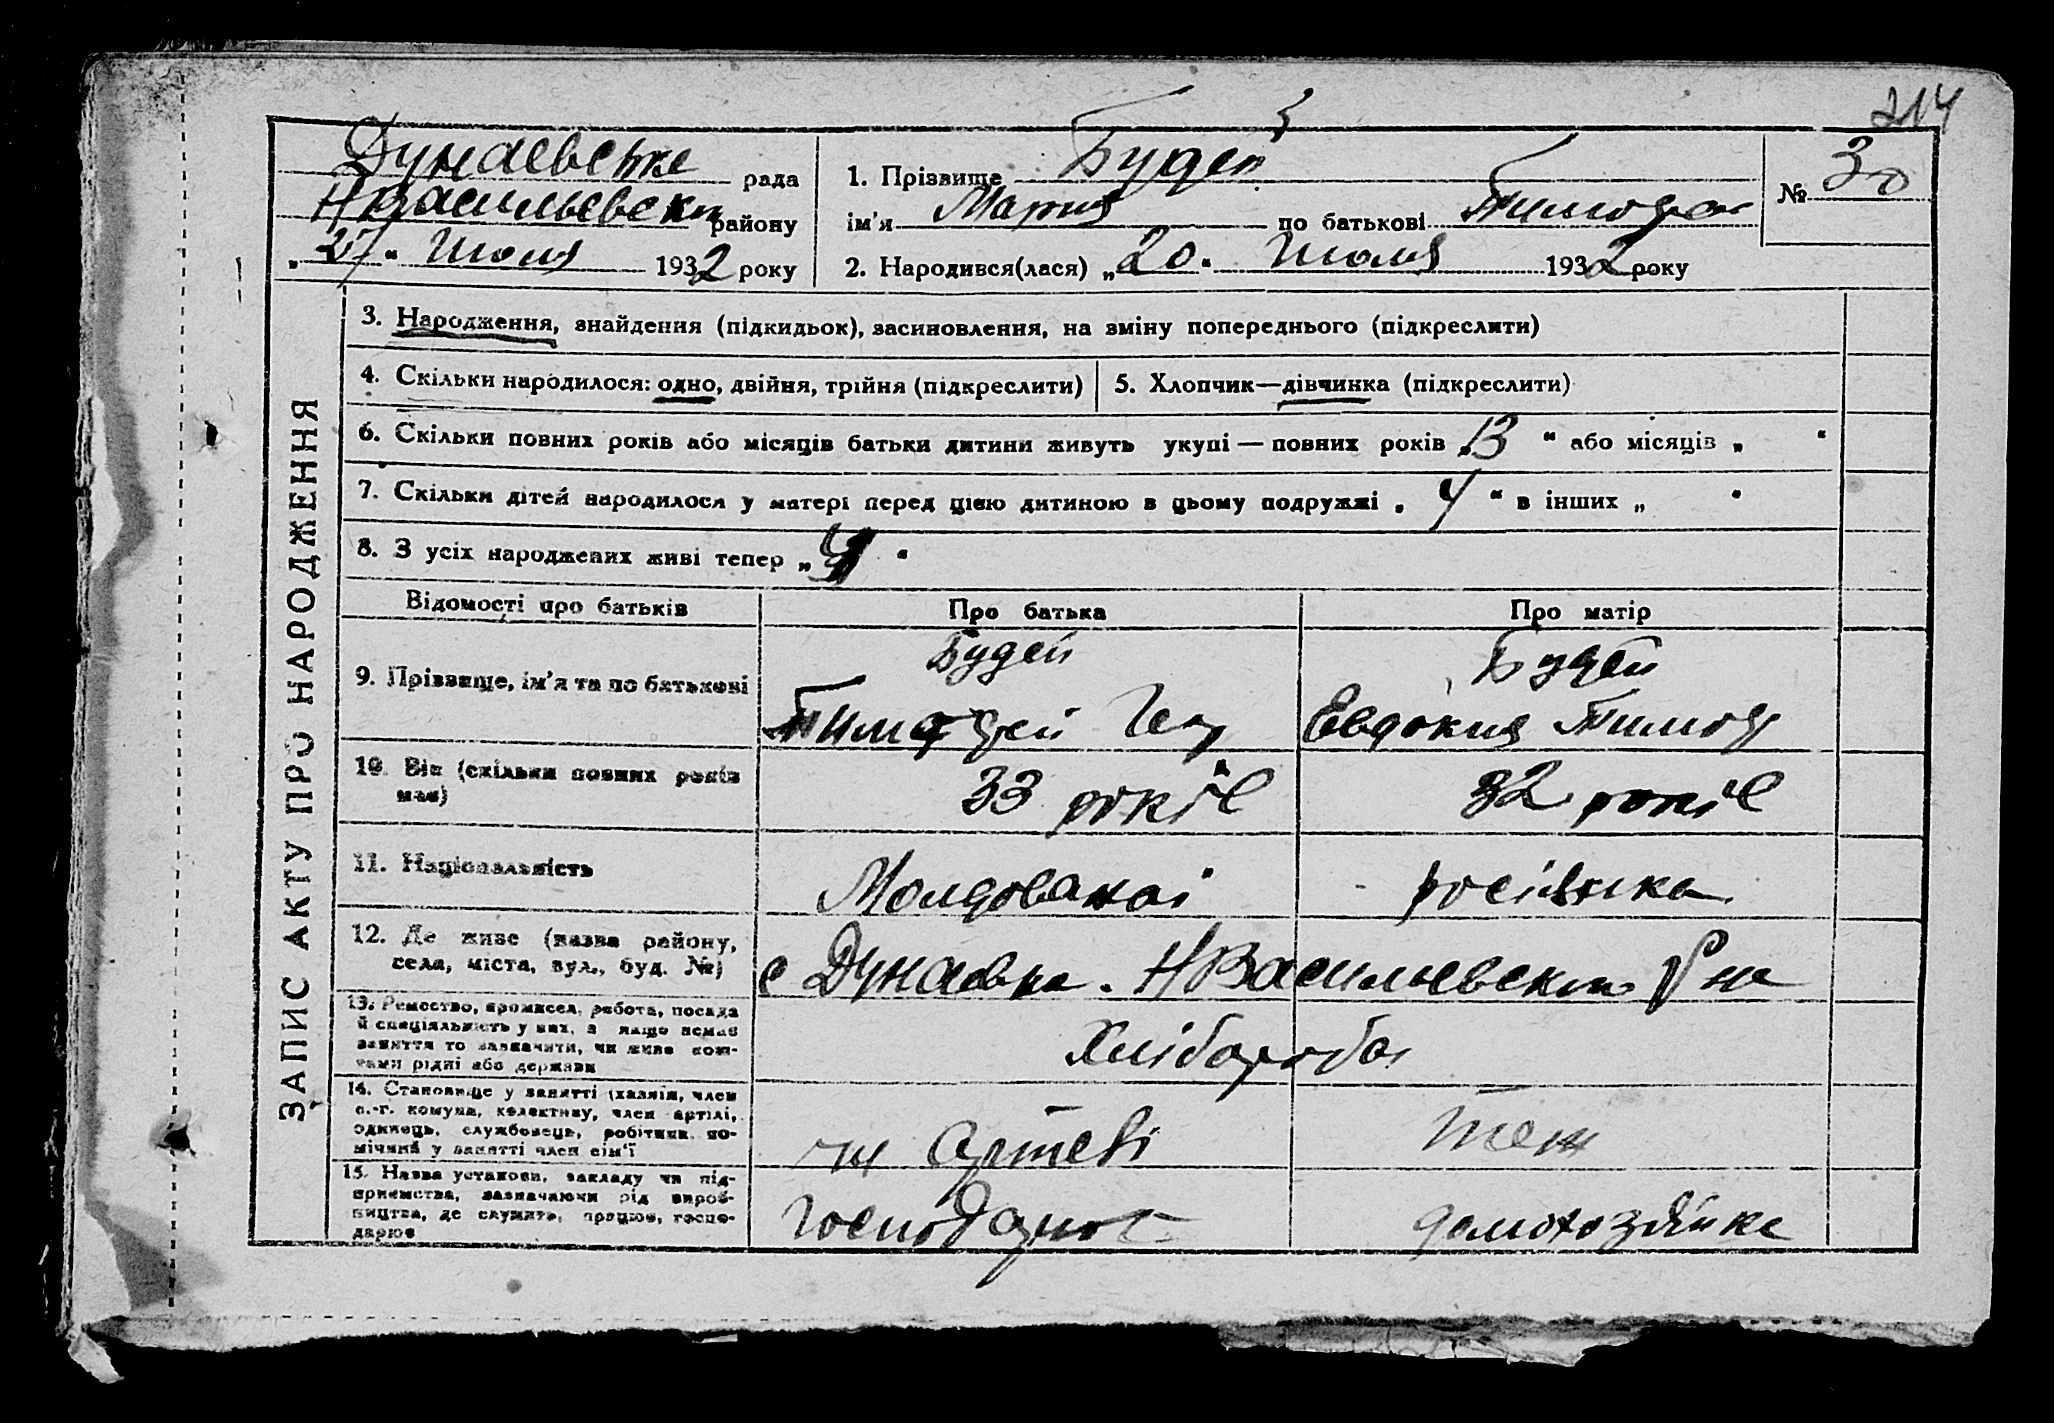 214
Дунаевська рада
НВасильевски району
„27“ Июля 1932 року
1. Прізвище Будей
ім'я Мария по батькові Тимоф
№ 30
2. Народився(лася) „20“ Июля 1932 року
ЗАПИС АКТУ ПРО НАРОДЖЕННЯ
3. Народження, знайдення (підкидьок), засиновлення, на зміну попереднього (підкреслити)
4. Скільки народилося: одно, двійня, трійня (підкреслити)
5. Хлопчик—дівчинка (підкреслити)
6. Скільки повних років або місяців батьки дитини живуть укупі — повних років „13“ або місяців „ “
7. Скільки дітей народилося у матері перед цією дитиною в цьому подружжі „4“ в інших „ “
8. З усіх народжених живі тепер „ “
Відомості про батьків Про батька Про матір
9. Прізвище, ім'я та по батькові
Будей
Тимофей
Будей
Евдокия Тимоф
10. Вік (скільки повних років має)
33 років
32 років
11. Національність
Молдован
росіянка
12. Де живе (назва району, села, міста, вул., буд. №)
с Дунаевка. НВасильевски р на
13. Ремество, промисел, робота, посада
й спеціяльність у них, а якщо немає
заняття то зазначити, чи живе кош-
тами рідні або держави
Хлібороба
14. Становище у занятті (хазяїн, член
с.-г. комуни, колективу, член артілі,
одинець, службовець, робітник, по-
мічний у занятті член сім'ї
чл артелі
теж
15. Назва установи, закладу чи під-
приємства, зазначаючи рід вироб-
ництва, де служить, працює, госпо-
дарює
домохозяйка